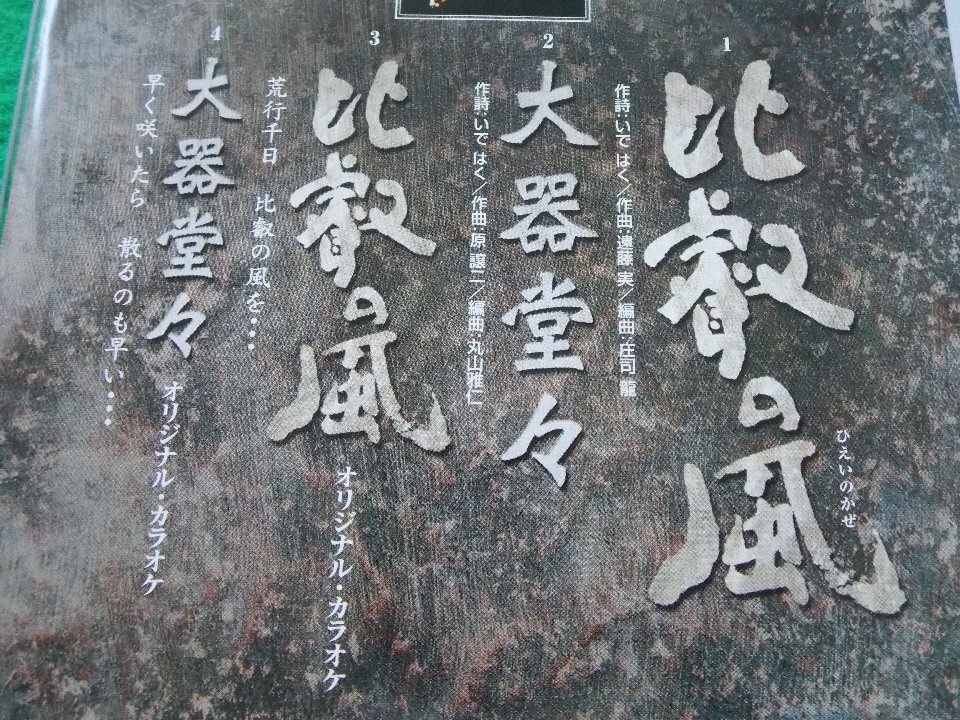 1
比叡の風
ひえいのかぜ
作詩：いで はく／作曲：遠藤 実／編曲：庄司 龍
2
大器堂々
作詩：いで はく／作曲：原 譲二／編曲：丸山雅仁
3
比叡の風 オリジナル・カラオケ
荒行千日 比叡の風を・・・
4
大器堂々 オリジナル・カラオケ
早く咲いたら 散るのも早い・・・